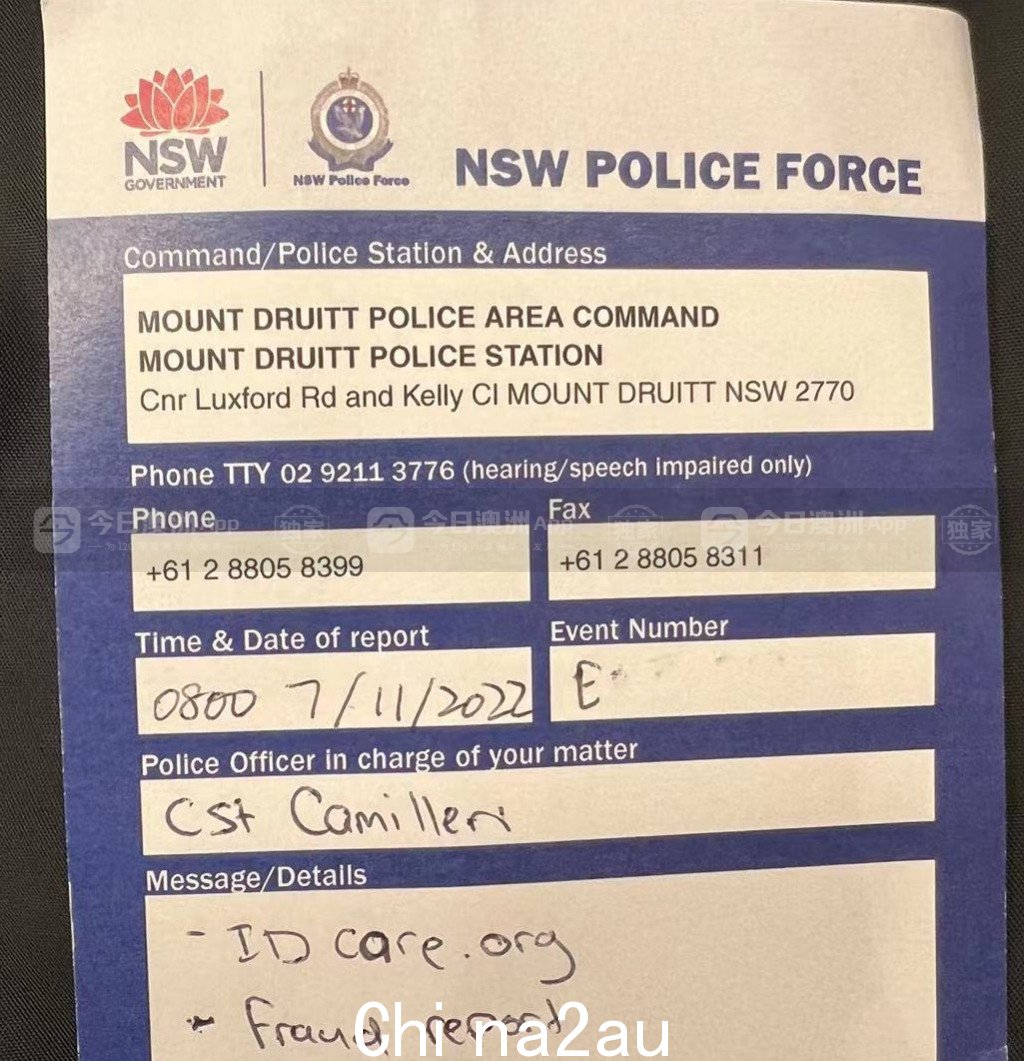 NSW
GOVERNMENT
NSW Police Force
NSW POLICE FORCE
Command/Police Station & Address
MOUNT DRUITT POLICE AREA COMMAND
MOUNT DRUITT POLICE STATION
Cnr Luxford Rd and Kelly Cl MOUNT DRUITT NSW 2770
Phone TTY 02 9211 3776 (hearing/speech impaired only)
Phone
Fax
今日澳洲App 独家 今日澳洲App 独家 今日澳洲App 独家
+61 2 8805 8399
+61 2 8805 8311
Time & Date of report
Event Number
0800 7/11/2022
E
Police Officer in charge of your matter
Cst Camilleri
Message/Details
- ID care.org
- Fraud report
China2au